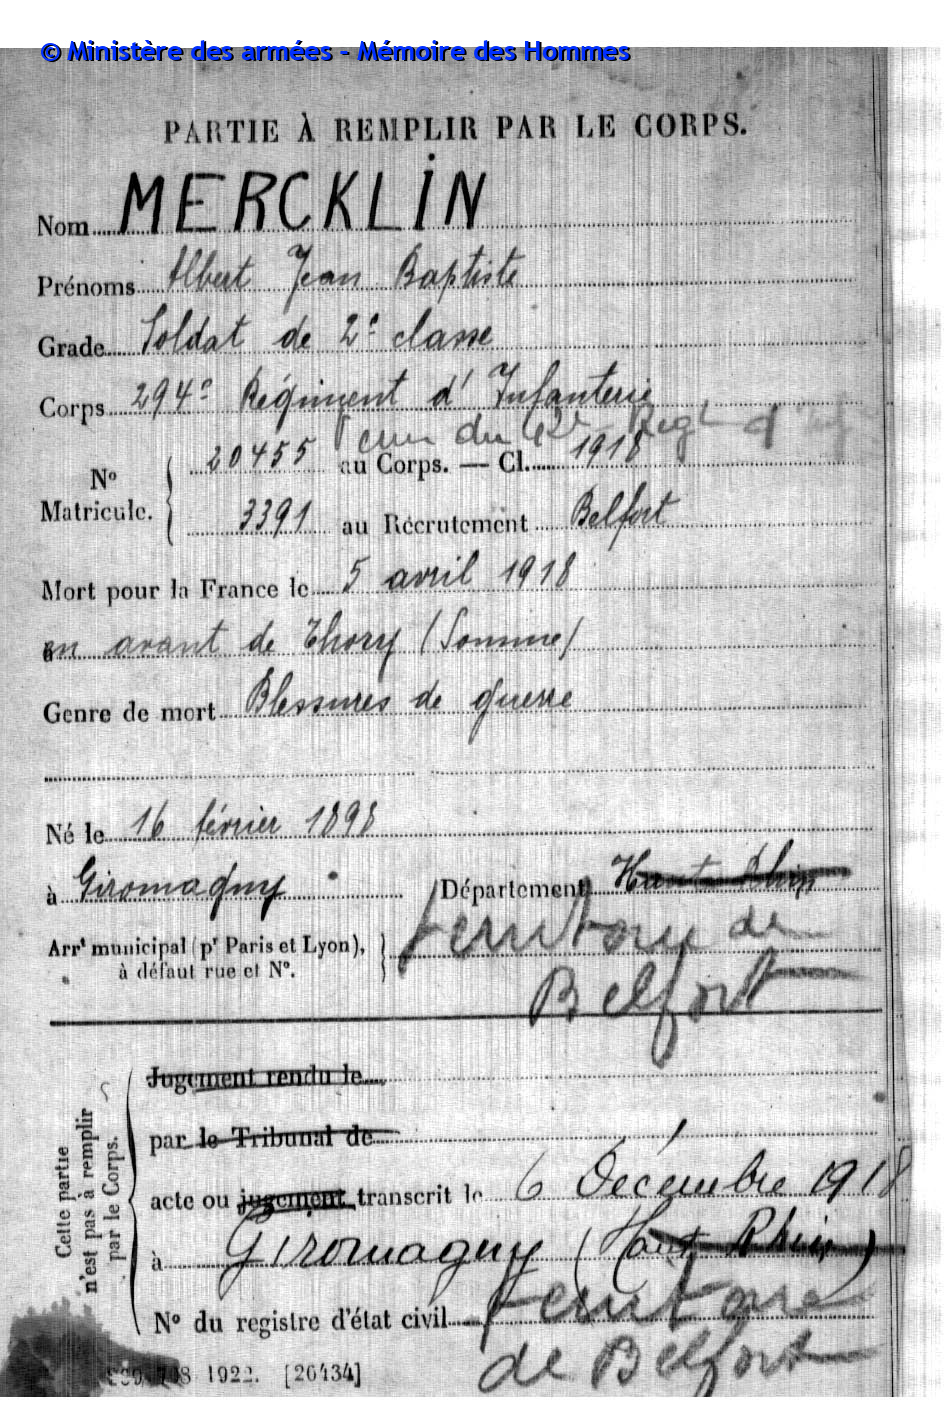 © Ministère des armées - Mémoire des Hommes
PARTIE À REMPLIR PAR LE CORPS.
Nom MERCKLIN
Prénoms Albert Jean Baptiste
Grade Soldat de 2e classe
Corps 294e Régiment d'Infanterie
venu du 42e Regt d'Inf
No Matricule. 20455 au Corps. — Cl. 1918
3391 au Recrutement Belfort
Mort pour la France le 5 avril 1918
en avant de Thory (Somme)
Genre de mort Blessures de guerre
Né le 16 février 1898
à Giromagny Département Haut Rhin
Territoire de
Arrt municipal (pr Paris et Lyon),
à défaut rue et No.
Belfort
Cette partie
n'est pas à remplir
par le Corps.
Jugement rendu le
par le Tribunal de
acte ou jugement transcrit le 6 Décembre 1918
à Giromagny (Haut Rhin)
Territoire
No du registre d'état civil
de Belfort
1922. [26434]